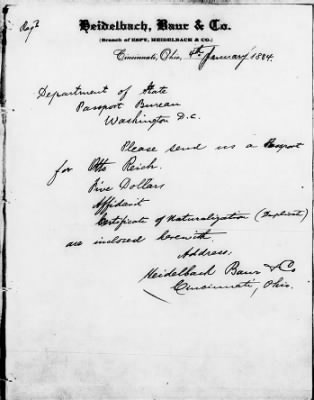 Regd
Heidelbach, Baur & Co.
(Branch of ESPY, HEIDELBACH & CO.)
Cincinnati, Ohio, 4th January 1884.
Department of State
Passport Bureau
Washington D.C.
Please send us a Passport
for Otto Reich.
Five Dollars
Affidavit
Certificate of Naturalization (Duplicate)
are inclosed herewith.
Address:
Heidelbach Baur & Co
Cincinnati, Ohio.